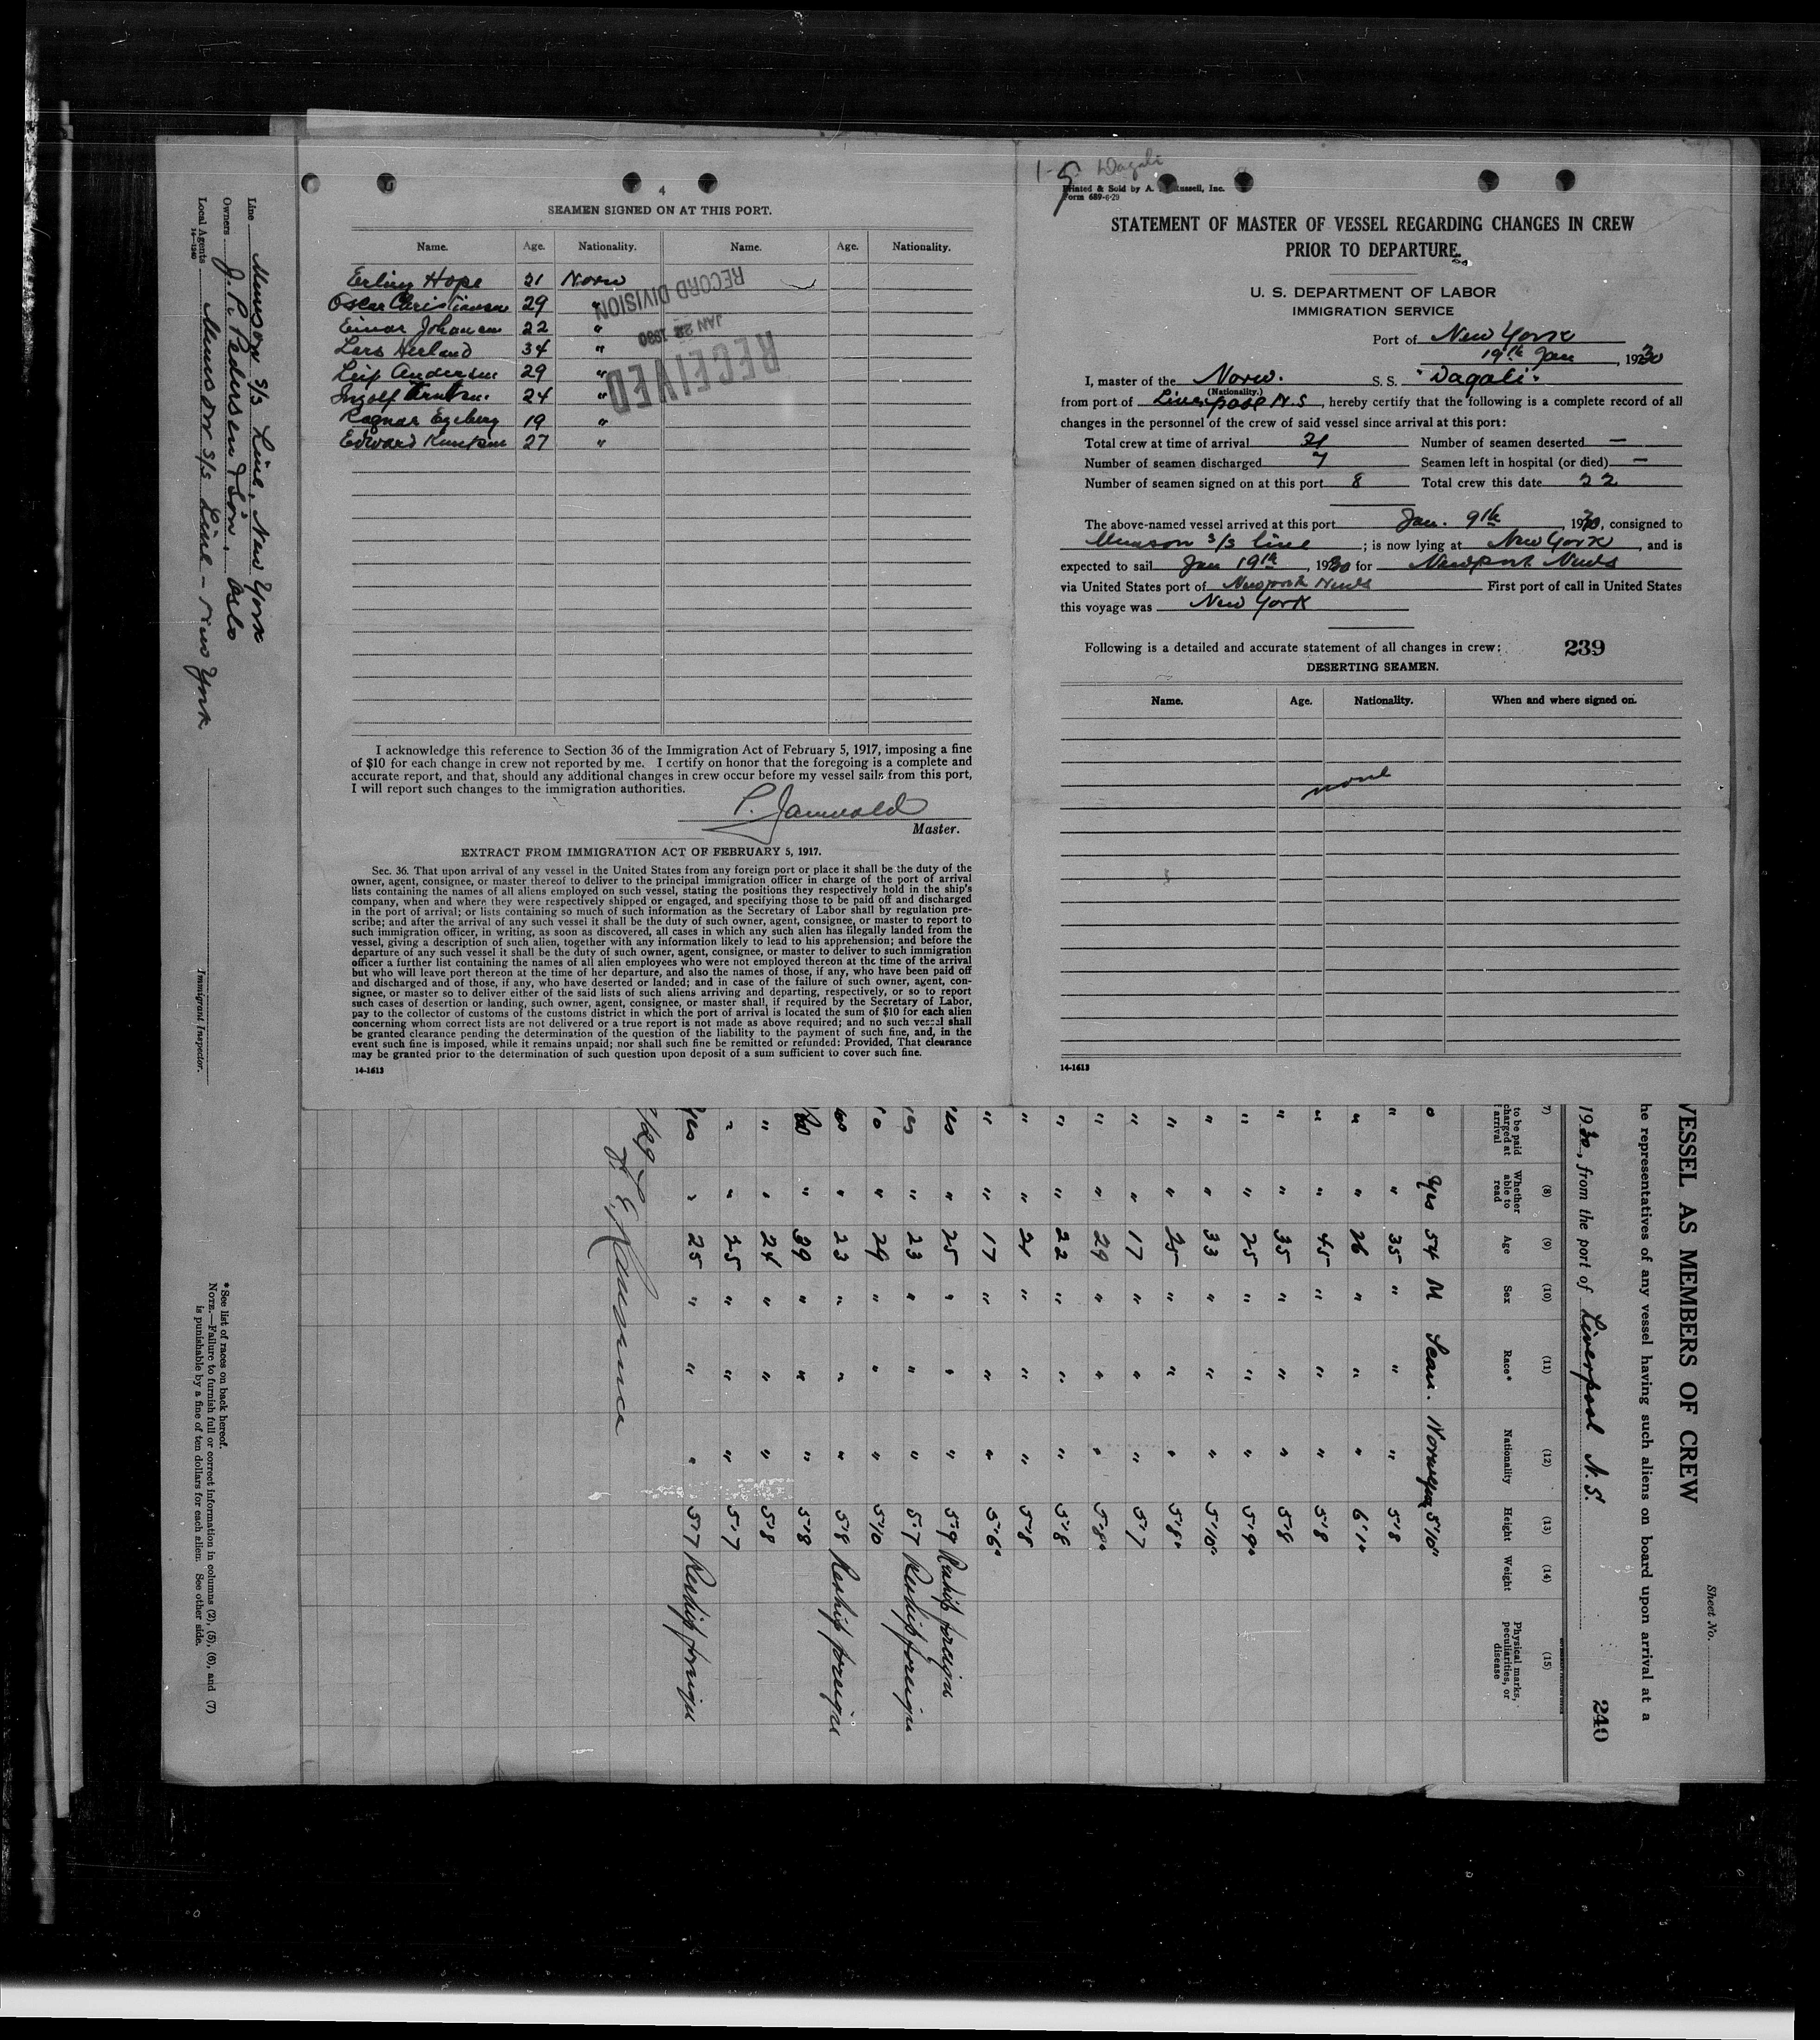 4
SEAMEN SIGNED ON AT THIS PORT.
Name. Age. Nationality. Name. Age. Nationality.
Erling Hope 21 Norw
Oscar Christiansen 29 "
Einar Johansen 22 "
Lars Herland 34 "
Leif Andersen 29 "
Ingolf 24 "
Ragnar Egeberg 19 "
Edward Knutsen 27 "
RECEIVED
JAN 22 1930
RECORD DIVISION
I acknowledge this reference to Section 36 of the Immigration Act of February 5, 1917, imposing a fine
of $10 for each change in crew not reported by me. I certify on honor that the foregoing is a complete and
accurate report, and that, should any additional changes in crew occur before my vessel sails from this port,
I will report such changes to the immigration authorities.
P.
Master.
EXTRACT FROM IMMIGRATION ACT OF FEBRUARY 5, 1917.
Sec. 36. That upon arrival of any vessel in the United States from any foreign port or place it shall be the duty of the
owner, agent, consignee, or master thereof to deliver to the principal immigration officer in charge of the port of arrival
lists containing the names of all aliens employed on such vessel, stating the positions they respectively hold in the ship's
company, when and where they were respectively shipped or engaged, and specifying those to be paid off and discharged
in the port of arrival; or lists containing so much of such information as the Secretary of Labor shall by regulation pre-
scribe; and after the arrival of any such vessel it shall be the duty of such owner, agent, consignee, or master to report to
such immigration officer, in writing, as soon as discovered, all cases in which any such alien has illegally landed from the
vessel, giving a description of such alien, together with any information likely to lead to his apprehension; and before the
departure of any such vessel it shall be the duty of such owner, agent, consignee, or master to deliver to such immigration
officer a further list containing the names of all alien employees who were not employed thereon at the time of the arrival
but who will leave port thereon at the time of her departure, and also the names of those, if any, who have been paid off
and discharged and of those, if any, who have deserted or landed; and in case of the failure of such owner, agent, con-
signee, or master so to deliver either of the said lists of such aliens arriving and departing, respectively, or so to report
such cases of desertion or landing, such owner, agent, consignee, or master shall, if required by the Secretary of Labor,
pay to the collector of customs of the customs district in which the port of arrival is located the sum of $10 for each alien
concerning whom correct lists are not delivered or a true report is not made as above required; and no such vessel shall
be granted clearance pending the determination of the question of the liability to the payment of such fine, and, in the
event such fine is imposed, while it remains unpaid; nor shall such fine be remitted or refunded: Provided, That clearance
may be granted prior to the determination of such question upon deposit of a sum sufficient to cover such fine.
14-1613
Dagali
Printed & Sold by A. Russell, Inc.
Form 689-6-29
STATEMENT OF MASTER OF VESSEL REGARDING CHANGES IN CREW
PRIOR TO DEPARTURE.
U. S. DEPARTMENT OF LABOR
IMMIGRATION SERVICE
Port of New York
19th Jan, 1930
I, master of the Norw. S. S. "Dagali"
(Nationality.)
from port of Liverpool N.S, hereby certify that the following is a complete record of all
changes in the personnel of the crew of said vessel since arrival at this port:
Total crew at time of arrival 21 Number of seamen deserted —
Number of seamen discharged 7 Seamen left in hospital (or died) —
Number of seamen signed on at this port 8 Total crew this date 22
The above-named vessel arrived at this port Jan. 9th, 1930, consigned to
Munson S/S Line; is now lying at New York, and is
expected to sail Jan 19th, 1930 for Newport News
via United States port of Newport News First port of call in United States
this voyage was New York
Following is a detailed and accurate statement of all changes in crew: 239
DESERTING SEAMEN.
Name. Age. Nationality. When and where signed on.
none
14-1613
Line Munson S/S Line, New York
Owners J. P. Pedersen & Son. Oslo
Local Agents Munson S/S Line - New York
14—1240
Immigrant Inspector.
* See list of races on back hereof.
NOTE.—Failure to furnish full or correct information in columns (2), (5), (6), and (7)
is punishable by a fine of ten dollars for each alien. See other side.
Sheet No.
VESSEL AS MEMBERS OF CREW
he representatives of any vessel having such aliens on board upon arrival at a
1930, from the port of Liverpool N.S. 240
7) (8) (9) (10) (11) (12) (13) (14) (15)
to be paid charged at arrival Whether able to read Age Sex Race* Nationality Height Weight Physical marks, peculiarities, or disease
o Yes 54 M Scan. Norwegian 5'10"
" " 35 " " " 5'8
" " 26 " " " 6'1"
" " 45 " " " 5'8
" " 35 " " " 5'8
" " 25 " " " 5'9"
" " 33 " " " 5'10"
" " 25 " " " 5'8"
" " 17 " " " 5'7
" " 29 " " " 5'8"
" " 22 " " " 5'8
" " 21 " " " 5'8
" " 17 " " " 5'6"
yes " 25 " " " 5'9 Reship foreign
yes " 23 " " " 5'7 Reship foreign
no " 29 " " " 5'10
" 23 " " " 5'8 Reship foreign
no " 39 " " " 5'8
" " 24 " " " 5'8
" " 25 " " " 5'7
yes " 25 " " " 5'7 Reship foreign